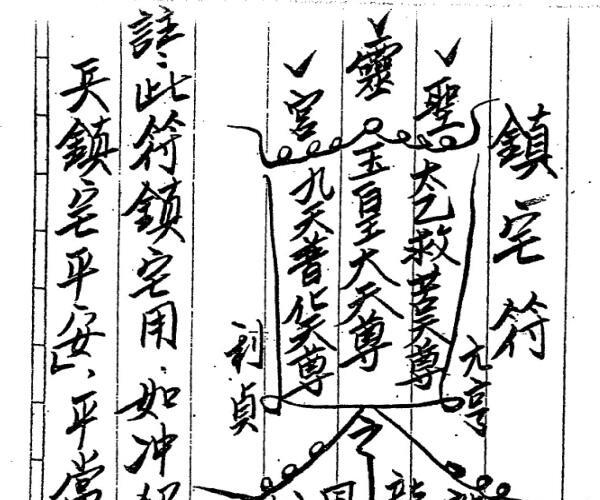 鎮宅符
聖靈宮
太乙救苦天尊
玉皇大天尊
九天普化天尊
元亨
利貞
令
註：此符鎮宅用．如冲
兵鎮宅平安」、平常